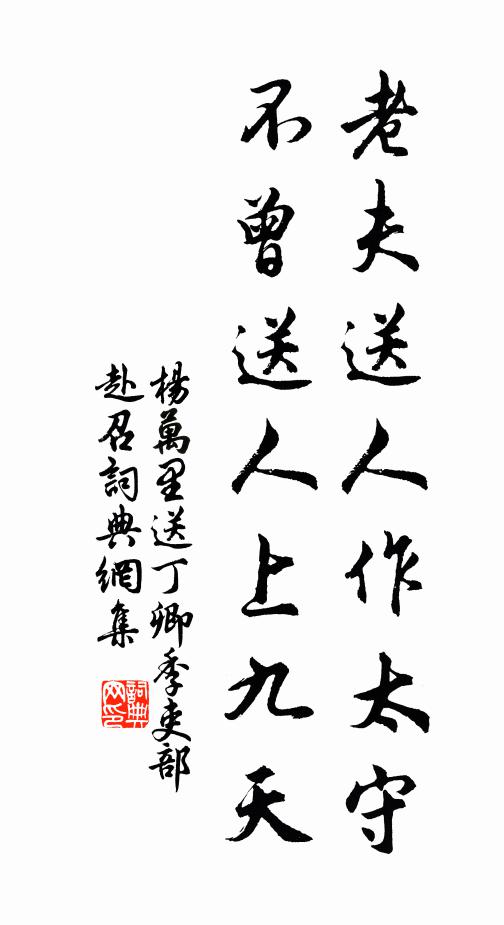 老夫送人作太守
不曾送人上九天
楊萬里送丁卿季吏部
赴召詞典網集
詞典
网印